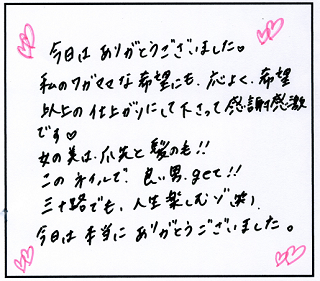 今日は ありがとうございました。
私のワガママな希望にも、応よく、希望
以上の仕上がりにして下さって感謝感激
です♡
女の美は、爪先と髪のも!!
このネイルで、良い男、get!!
三十路でも、人生楽しむゾ(笑)
今日は本当に ありがとうございました。